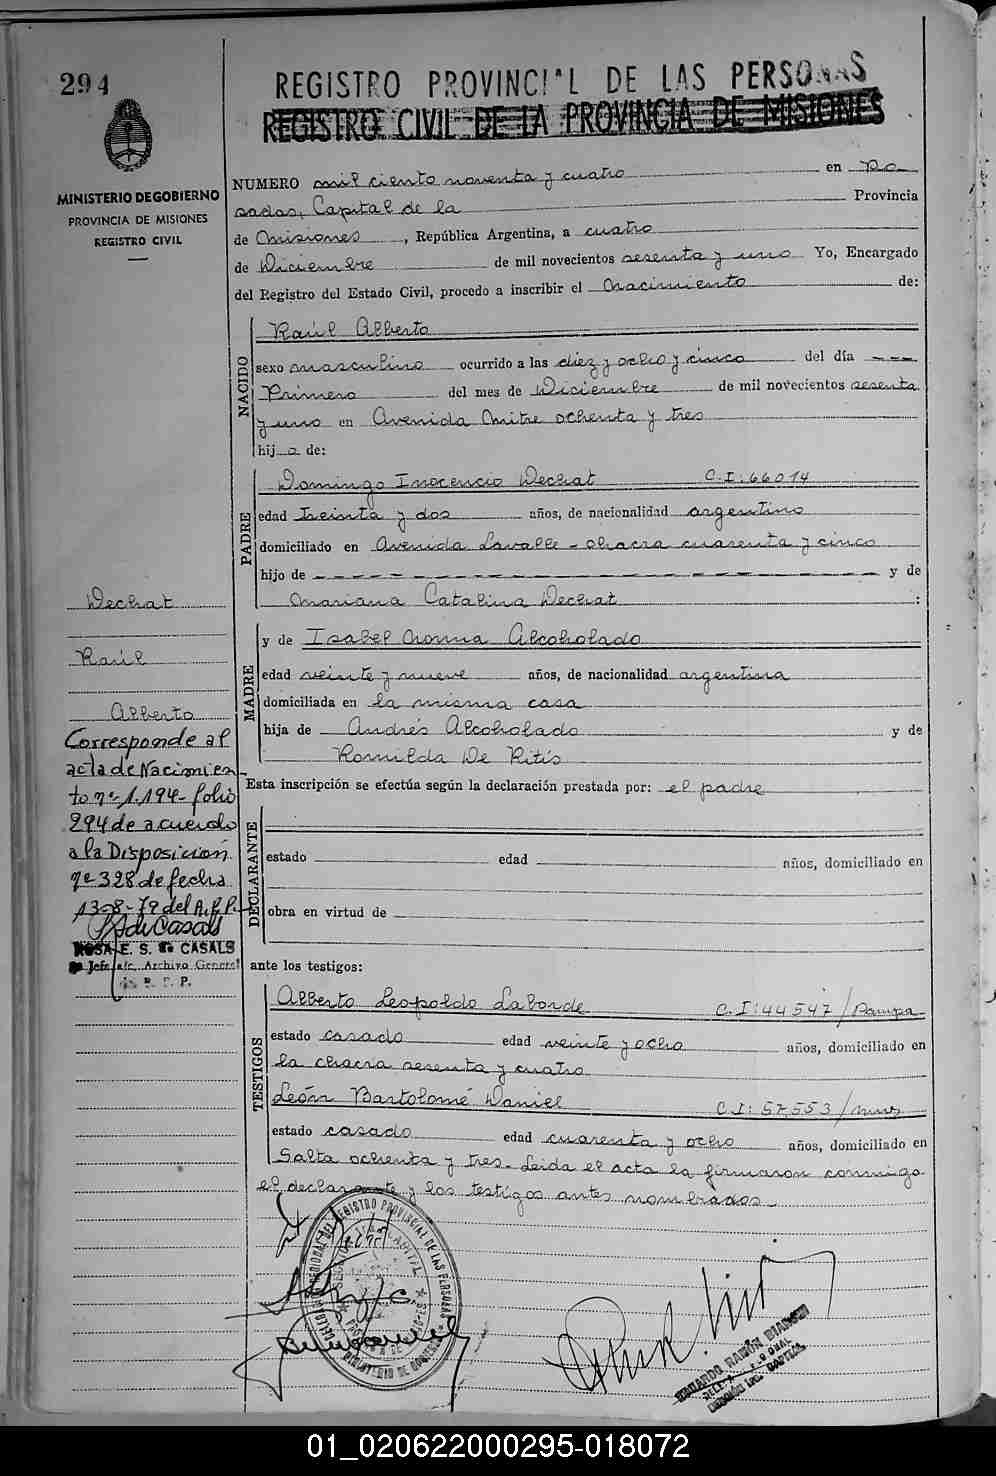 294
REGISTRO PROVINCIAL DE LAS PERSONAS
REGISTRO CIVIL DE LA PROVINCIA DE MISIONES
MINISTERIO DE GOBIERNO
PROVINCIA DE MISIONES
REGISTRO CIVIL
NUMERO mil ciento noventa y cuatro en Po
sadas, Capital de la Provincia
de Misiones, República Argentina, a cuatro
de Diciembre de mil novecientos sesenta y uno Yo, Encargado
del Registro del Estado Civil, procedo a inscribir el Nacimiento de:
NACIDO
Raúl Alberto
sexo masculino ocurrido a las diez y ocho y cinco del día ---
Primero del mes de Diciembre de mil novecientos sesenta
y uno en Avenida Mitre ochenta y tres
hijo de:
PADRE
Domingo Inocencio Dechat C.I: 66014
edad treinta y dos años, de nacionalidad argentino
domiciliado en Avenida Lavalle - chacra cuarenta y cinco
hijo de - - - - - - - - - - - - - - - - y de
Mariana Catalina Dechat :
MADRE
y de Isabel Norma Alcoholado
edad veinte y nueve años, de nacionalidad argentina
domiciliada en la misma casa
hija de Andrés Alcoholado y de
Romilda De Ritis
Esta inscripción se efectúa según la declaración prestada por: el padre
DECLARANTE
estado edad años, domiciliado en
obra en virtud de
ante los testigos:
TESTIGOS
Alberto Leopoldo Laborde C.I: 44547/Pampa
estado casado edad veinte y ocho años, domiciliado en
la chacra sesenta y cuatro
León Bartolomé Daniel C.I: 57,553/mnes
estado casado edad cuarenta y ocho años, domiciliado en
Salta ochenta y tres. Leida el acta la firmaron conmigo
el declarante y los testigos antes nombrados.
Dechat
Raúl
Alberto
Corresponde al
acta de Nacimien-
to nº 1.194 - folio
294 de acuerdo
a la Disposición
nº 328 de fecha
13-8-78 del R.P.P.
ROSA E. S. de CASALS
Jefe a/c. Archivo General
R. P. P.
REGISTRO PROVINCIAL DE LAS PERSONAS
MINISTERIO DE GOBIERNO
EDUARDO RAMÓN
01_020622000295-018072